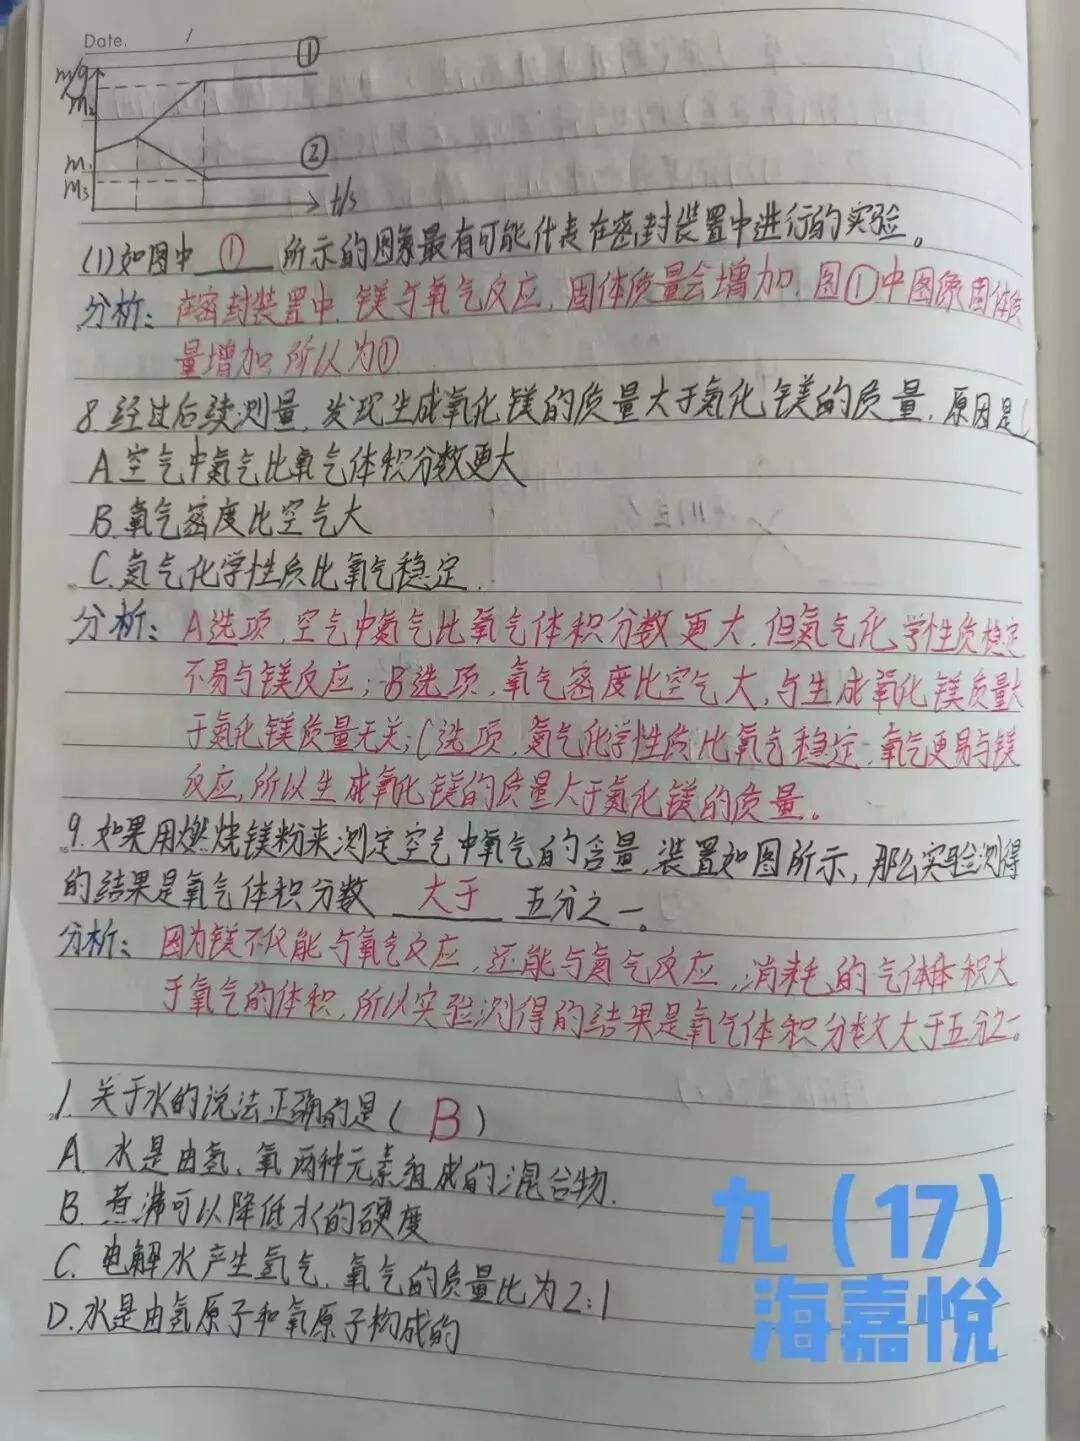 Date. /
m/g
m₂
①
m₁
m₃
②
t/s
(1)如图中 ① 所示的图象最有可能代表在密封装置中进行的实验。
分析：在密封装置中,镁与氧气反应,固体质量会增加,图①中图象固体质
量增加,所以为①
8.经过后续测量,发现生成氧化镁的质量大于氮化镁的质量,原因是(
A.空气中氮气比氧气体积分数更大
B.氧气密度比空气大
C.氮气化学性质比氧气稳定.
分析：A选项,空气中氮气比氧气体积分数更大,但氮气化学性质稳定
不易与镁反应;B选项,氧气密度比空气大,与生成氧化镁质量大
于氮化镁质量无关;C选项,氮气化学性质比氧气稳定,氧气更易与镁
反应,所以生成氧化镁的质量大于氮化镁的质量。
9.如果用燃烧镁粉来测定空气中氧气的含量,装置如图所示,那么实验测得
的结果是氧气体积分数 大于 五分之一。
分析：因为镁不仅能与氧气反应,还能与氮气反应,消耗的气体体积大
于氧气的体积,所以实验测得的结果是氧气体积分数大于五分之一。
1.关于水的说法正确的是(B)
A.水是由氢、氧两种元素组成的混合物.
B.煮沸可以降低水的硬度
C.电解水产生氢气、氧气的质量比为2:1
D.水是由氢原子和氧原子构成的
九（17）
海嘉悦